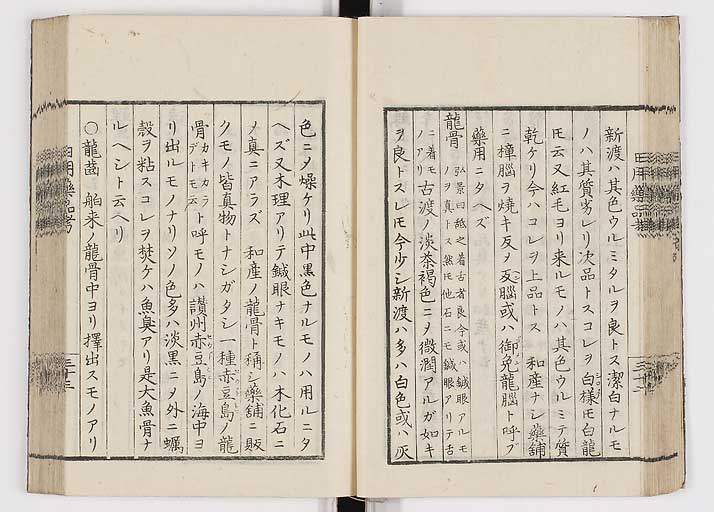 新渡ハ其色ウルミタルヲ良トス潔白ナルモ
ノハ其質劣レリ次品トスコレヲ白様モ白龍
モ云又紅毛ヨリ来ルモノハ其色ウルミテ質
乾ケリ今ハコレヲ上品トス 和産ナシ藥舗
ニ樟腦ヲ焼キ反ヲ反腦或ハ御免龍腦ト呼ブ
藥用ニタヘズ
龍骨 弘景曰舐之着舌者良今或ハ鍼眼アルモ
ノヲ真トス然モ他石ニモ鍼眼アリテ舌
ニ着モノアリ 古渡ノ淡茶褐色ニ〆微潤アルガ如キ
ヲ良トスレモ今少シ新渡ハ多ハ白色或ハ灰
色ニ〆燥ケリ此中黒色ナルモノハ用ルニタ
ヘズ又木理アリテ鍼眼ナキモノハ木化石ニ
〆真ニアラズ 和産ノ龍骨ト稱シ藥舗ニ販
クモノ皆真物トナシガタシ一種赤豆島ノ龍
骨カキカラデトモ云ト呼モノハ讃州赤豆島ノ海中ヨ
リ出ルモノナリソノ色多ハ淡黒ニ〆外ニ蠣
殻ヲ粘スコレヲ焚ケハ魚臭アリ是大魚骨ナ
ルヘシト云ヘリ
○龍齒 舶来ノ龍骨中ヨリ擇出スモノアリ
日用藥品考
三十三